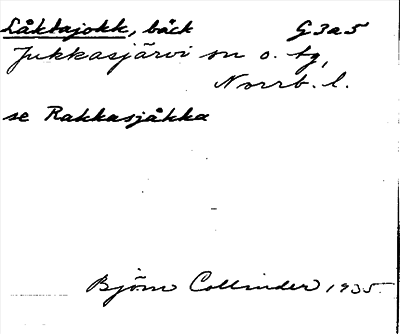 Låktajokk, bäck G3a5
Jukkasjärvi sn o. tg,
Norrb. l.
se Rakkasjåkka
Björn Collinder 1935.